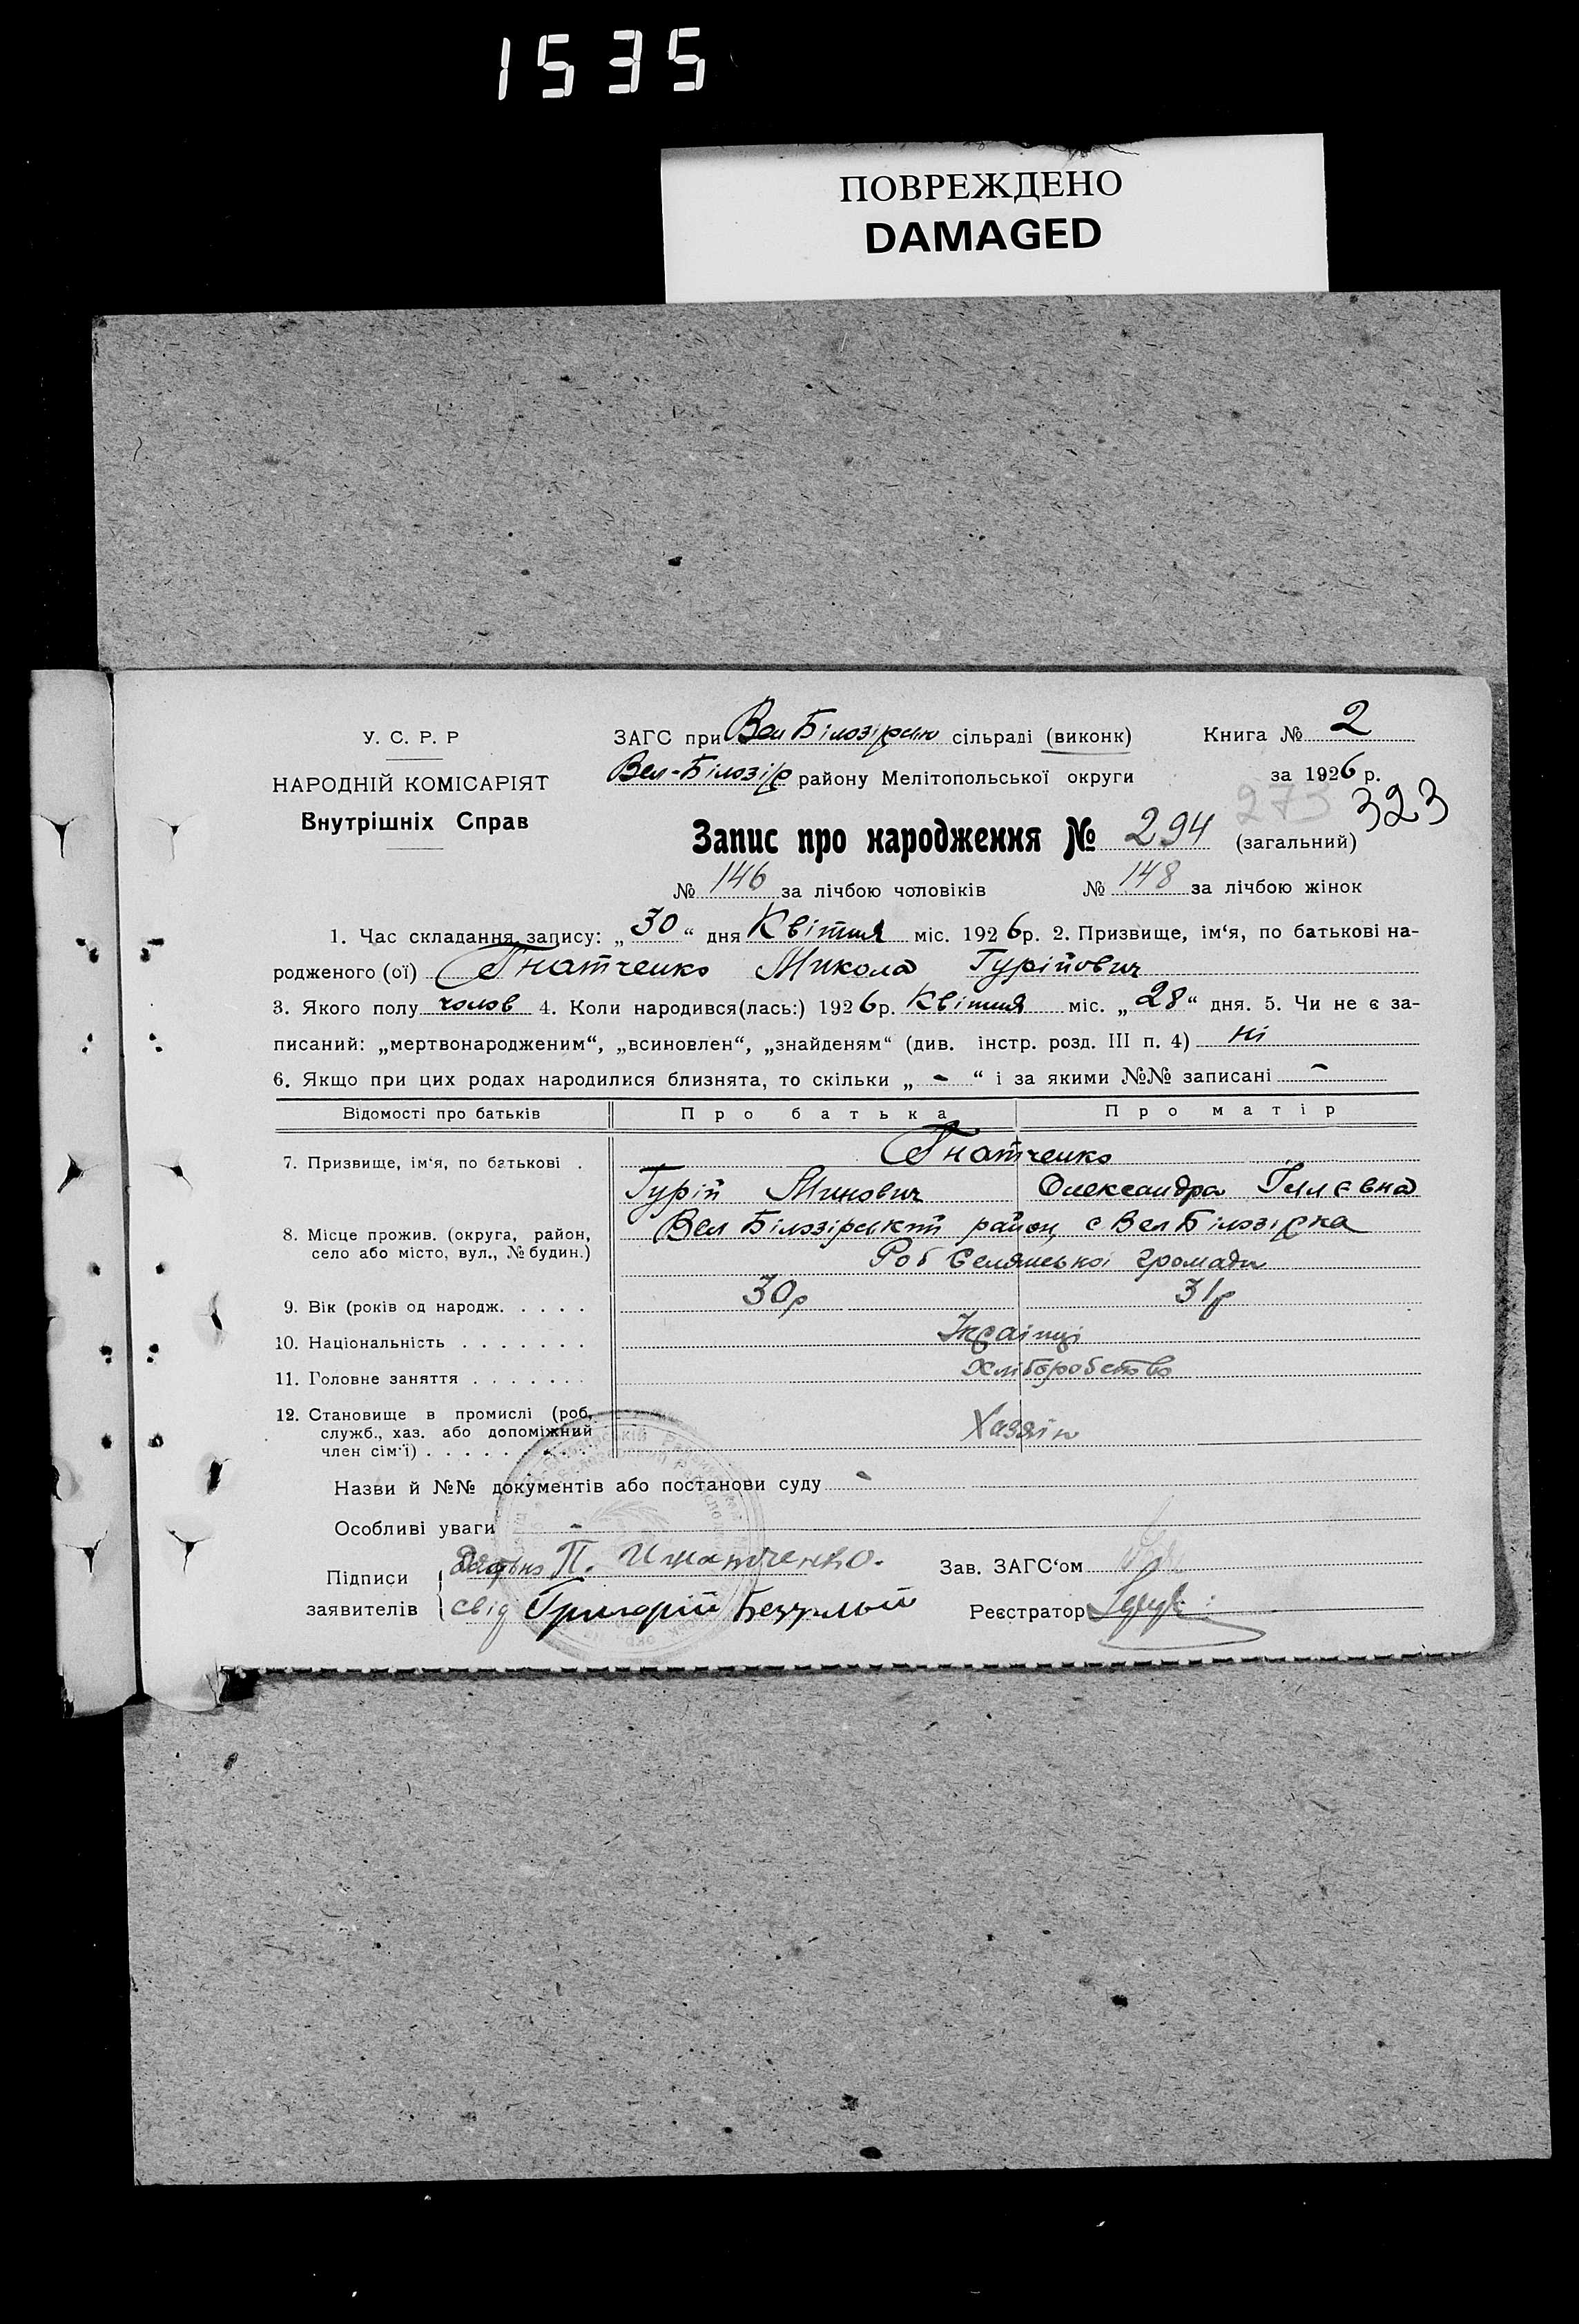 1535
ПОВРЕЖДЕНО
DAMAGED
У. С. Р. Р
НАРОДНІЙ КОМІСАРІЯТ
Внутрішніх Справ
ЗАГС при Вел Білозірсько сільраді (виконк) Книга № 2
Вел-Білозір району Мелітопольської округи за 1926 р.
273 323
Запис про народження № 294 (загальний)
№ 146 за лічбою чоловіків № 148 за лічбою жінок
1. Час складання запису: „30“ дня Квітня міс. 1926 р. 2. Призвище, ім‘я, по батькові на-
родженого (ої) Гнатченко Микола Гурійович
3. Якого полу чолов 4. Коли народився(лась:) 1926 р. Квітня міс. „28“ дня. 5. Чи не є за-
писаний: „мертвонародженим“, „всиновлен“, „знайденям“ (див. інстр. розд. III п. 4) ні
6. Якщо при цих родах народилися близнята, то скільки „ - “ і за якими №№ записані -
Відомості про батьків Про батька Про матір
7. Призвище, ім‘я, по батькові . Гнатченко
Гурій Минович Олександра Іллєвна
8. Місце прожив. (округа, район, село або місто, вул., № будин.) Вел Білозірський район, с Вел Білозірка
Роб Селянської громади
9. Вік (років од народж. . . . . 30р 31р
10. Національність . . . . . . . Українці
11. Головне заняття . . . . . . . Хліборобство
12. Становище в промислі (роб, служб., хаз. або допоміжний член сім‘ї) . . . . . . . Хазяїн
Назви й №№ документів або постанови суду -
Особливі уваги -
Підписи заявителів Батько Игнатченко.
свід Григорій
Зав. ЗАГС‘ом
Реєстратор